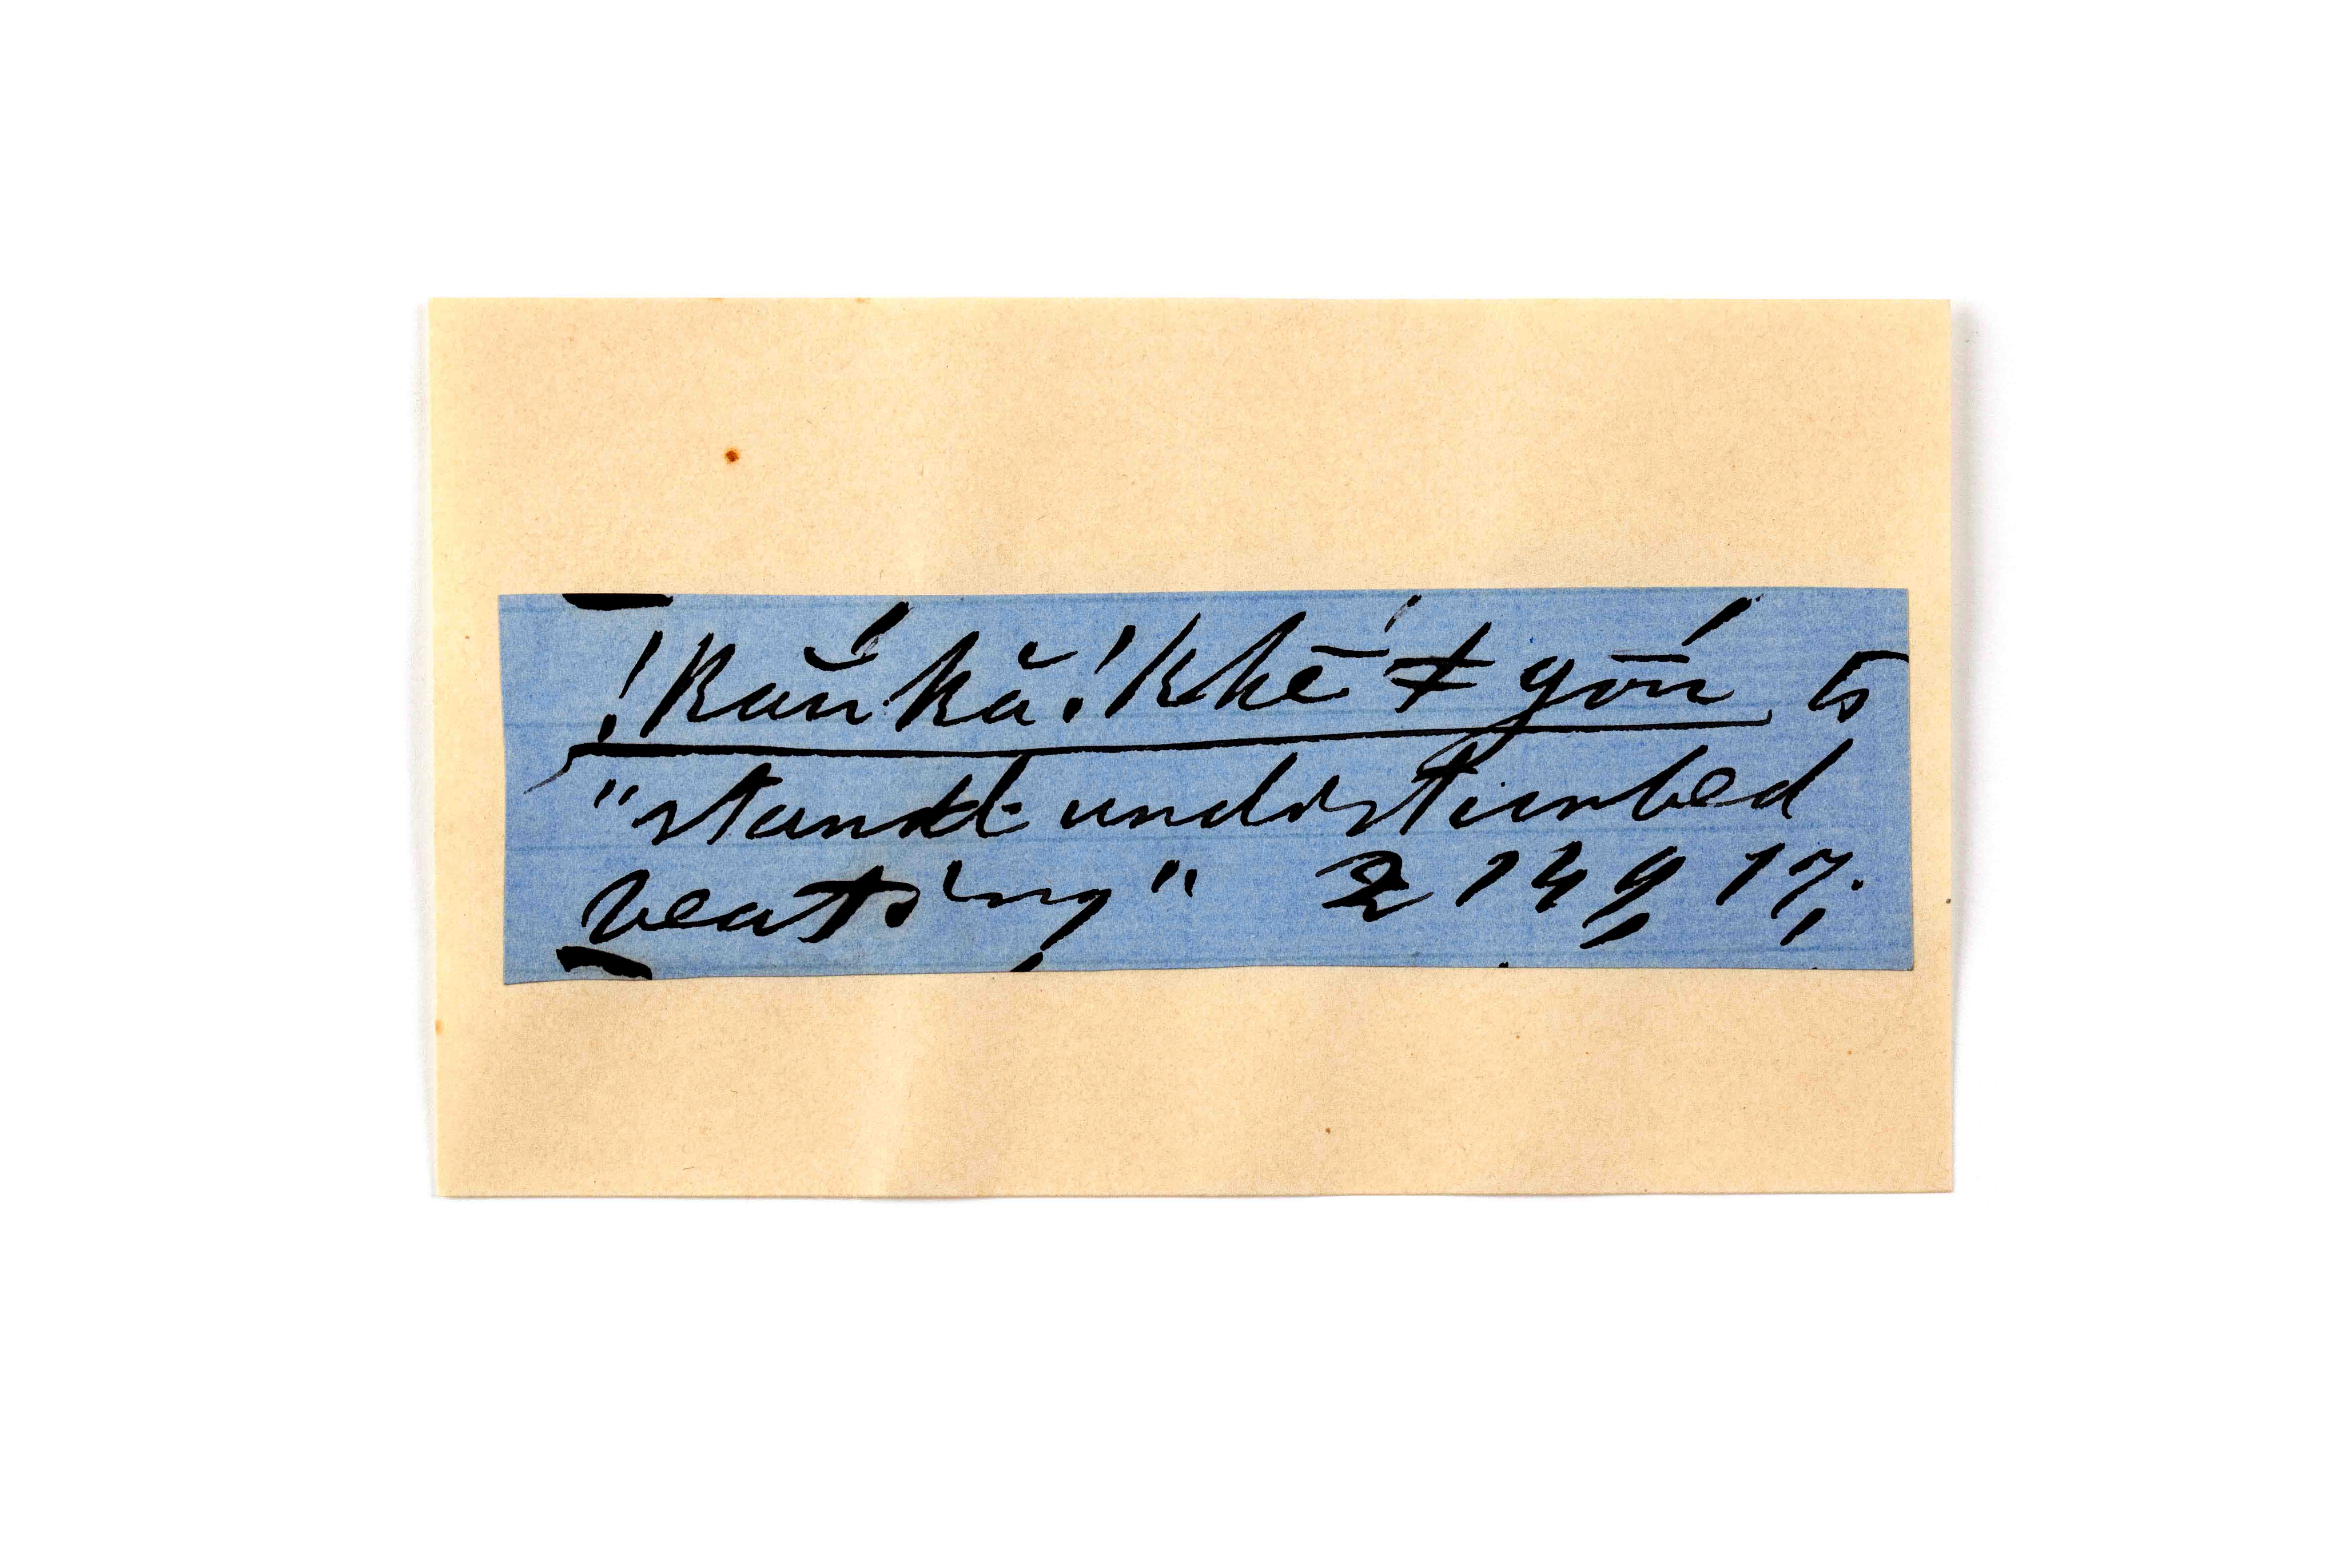 !kắṅkă !khē ǂgōṅ́ to
"stand undisturbed
beating" 2 149 17.